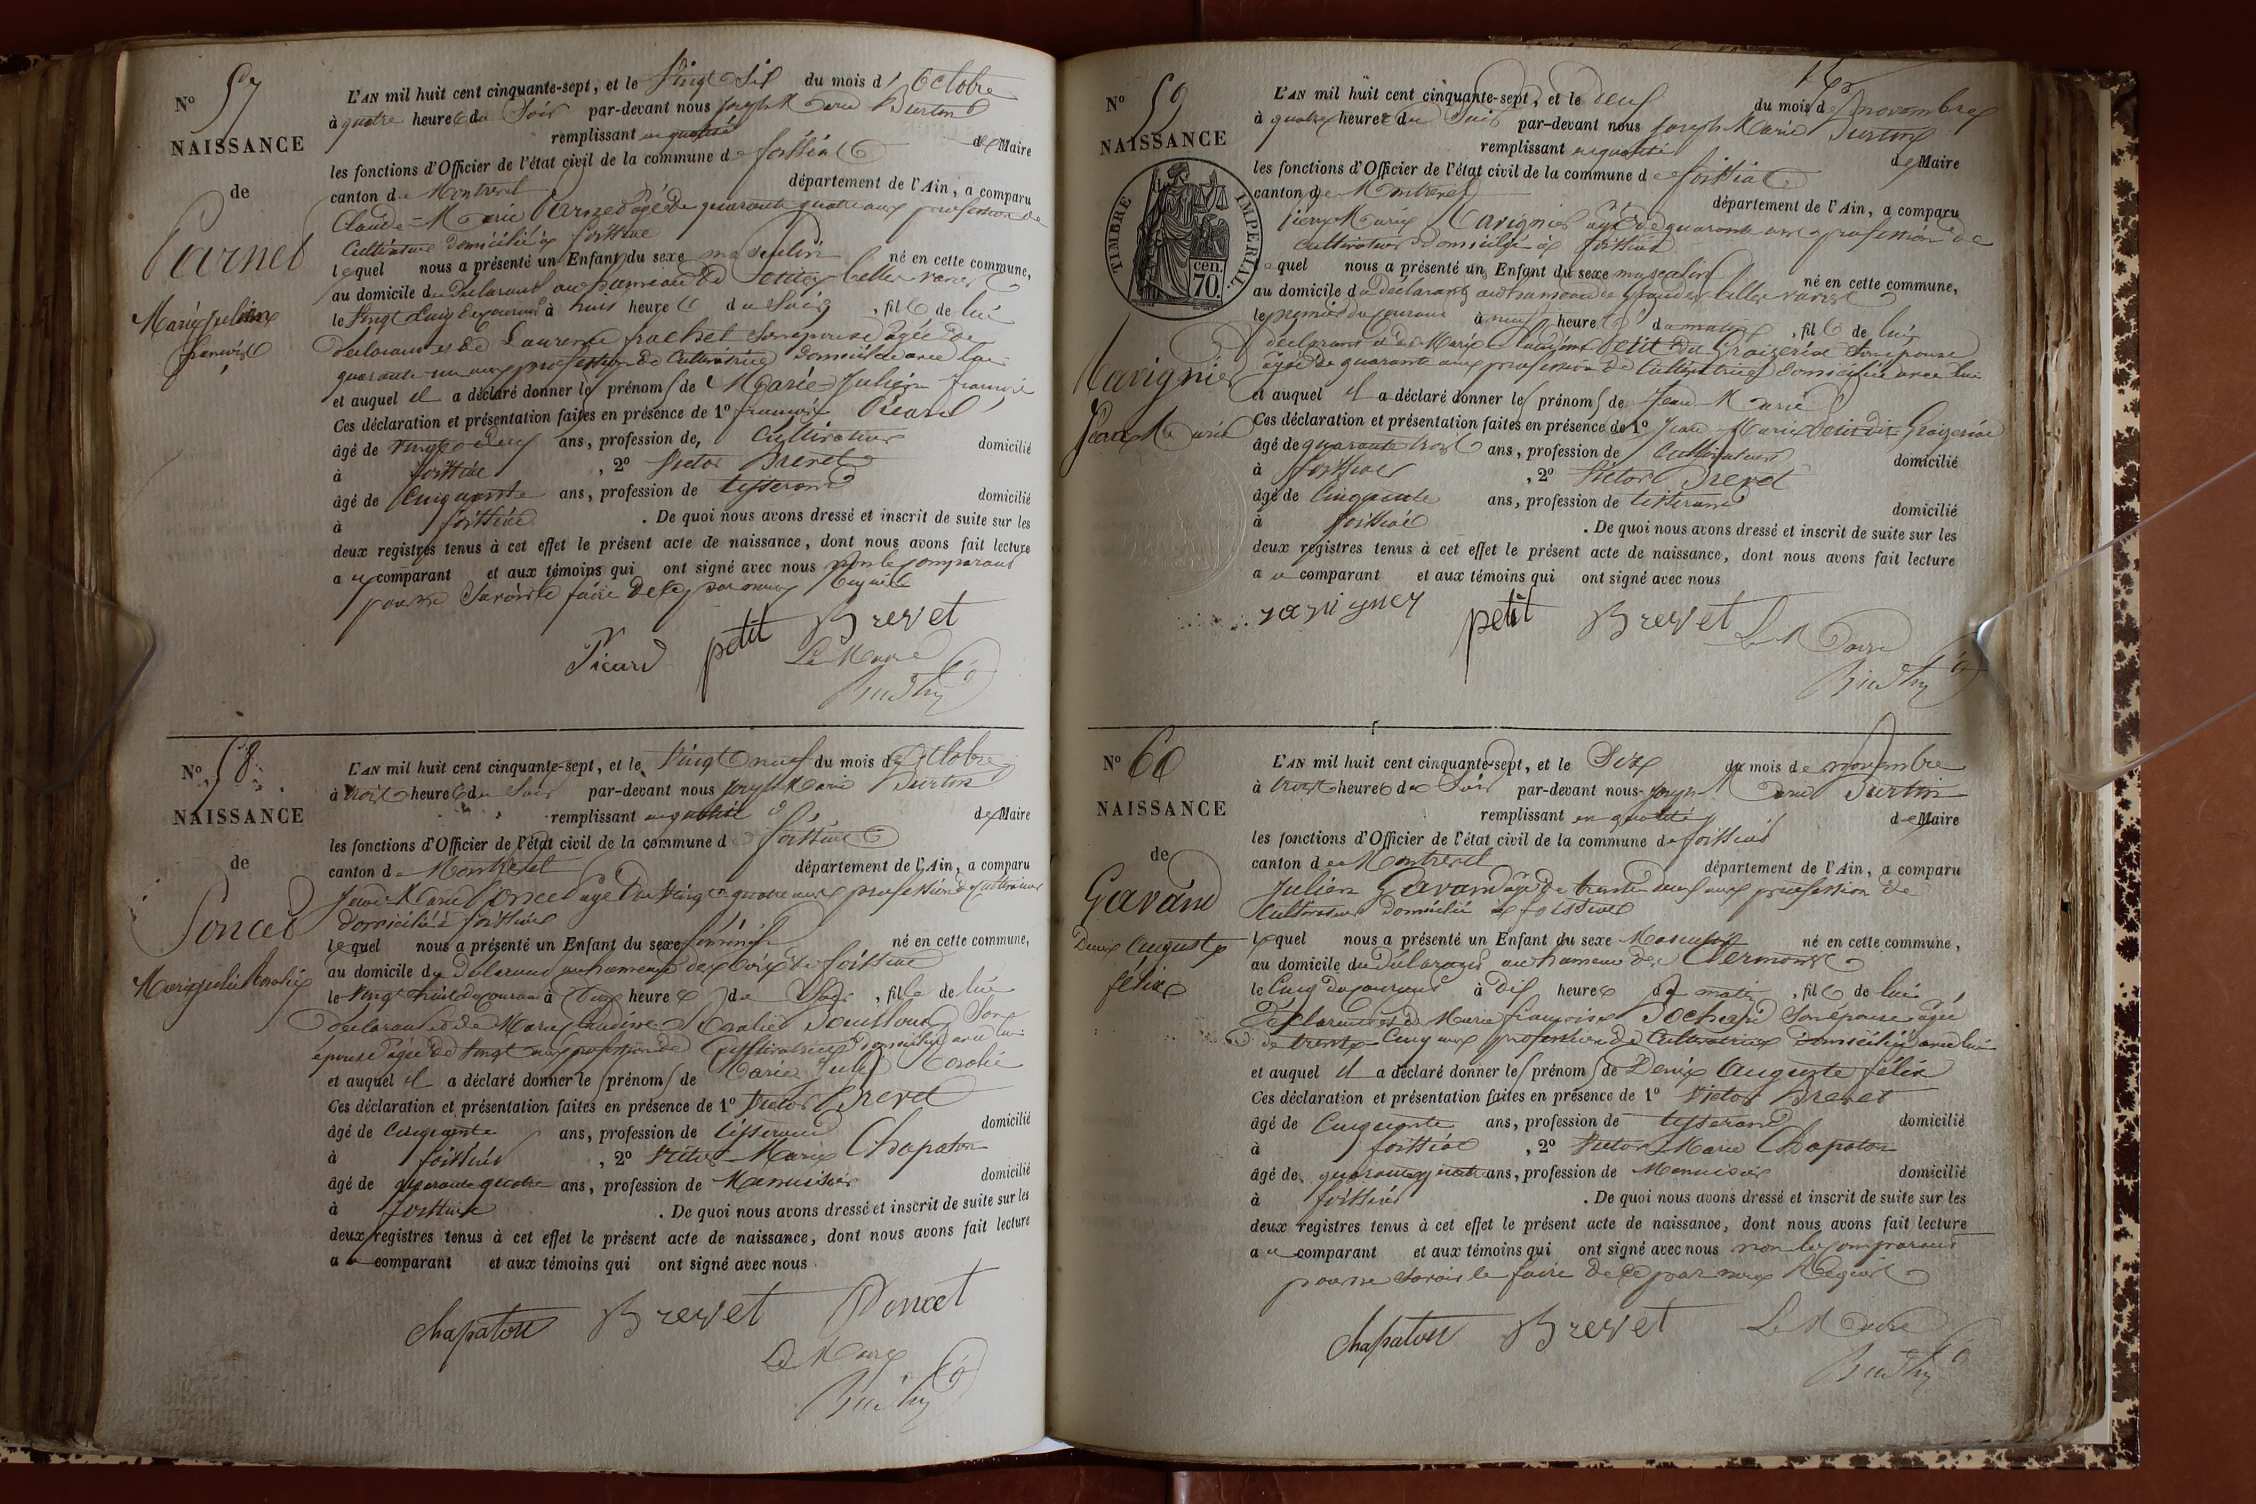 N° 57
NAISSANCE
de
Marie Julien
françois
L'AN mil huit cent cinquante-sept, et le Vingt Six du mois d'Octobre
à quatre heures du Soir par-devant nous Joseph Marie
remplissant en qualité de Maire
les fonctions d'Officier de l'état civil de la commune de foissiat
canton de Montrevel département de l'Ain, a comparu
Claude-Marie âgé de quarante quatre ans profession de
Cultivateur domicilié à foissiat
lequel nous a présenté un Enfant du sexe masculin né en cette commune,
au domicile du déclarant au hameau de
le Vingt Cinq du courant à huit heures du Soir, fils de lui
déclarant et de Laurence son épouse âgée de
quarante-un ans profession de Cultivatrice domiciliée avec lui
et auquel il a déclaré donner les prénoms de Marie-Julien françois
Ces déclaration et présentation faites en présence de 1° françois Picard
âgé de vingt deux ans, profession de Cultivateur domicilié
à foissiat, 2° Victor Brevet
âgé de Cinquante ans, profession de tisserand domicilié
à foissiat. De quoi nous avons dressé et inscrit de suite sur les
deux registres tenus à cet effet le présent acte de naissance, dont nous avons fait lecture
au comparant et aux témoins qui ont signé avec nous non le comparant
pour ne Savoir le faire de ce par nous
Picard petit Brevet
Le Maire
N° 58
NAISSANCE
de
Poncet
Marie Julie Rosalie
L'AN mil huit cent cinquante-sept, et le Vingt neuf du mois d'Octobre
à trois heures du Soir par-devant nous Joseph Marie
remplissant en qualité de Maire
les fonctions d'Officier de l'état civil de la commune de foissiat
canton de Montrevel département de l'Ain, a comparu
Marie Poncet âgé de Vingt quatre ans profession de Cultivateur
domicilié à foissiat
lequel nous a présenté un Enfant du sexe féminin né en cette commune,
au domicile du déclarant au hameau de foissiat
le Vingt huit du courant à heures du, fille de lui
déclarant et de Marie Rosalie Son
épouse âgée de Vingt ans profession de Cultivatrice domiciliée avec lui
et auquel il a déclaré donner les prénoms de Marie Julie Rosalie
Ces déclaration et présentation faites en présence de 1° Victor Brevet
âgé de Cinquante ans, profession de tisserand domicilié
à foissiat, 2° Victor-Marie Chapaton
âgé de quarante quatre ans, profession de Menuisier domicilié
à foissiat. De quoi nous avons dressé et inscrit de suite sur les
deux registres tenus à cet effet le présent acte de naissance, dont nous avons fait lecture
au comparant et aux témoins qui ont signé avec nous
chapaton Brevet Poncet
Le Maire
N° 59
NAISSANCE
TIMBRE IMPÉRIAL
cen. 70.
Jean Marie
L'AN mil huit cent cinquante-sept, et le deux du mois de novembre
à quatre heures du Soir par-devant nous Joseph Marie
remplissant en qualité de Maire
les fonctions d'Officier de l'état civil de la commune de foissiat
canton de Montrevel département de l'Ain, a comparu
Marie âgé de quarante ans profession de
cultivateur domicilié à foissiat
lequel nous a présenté un Enfant du sexe masculin né en cette commune,
au domicile du déclarant au hameau de
le premier du courant à heures du matin, fils de lui
déclarant et de Marie Petit dit son épouse
âgée de quarante ans profession de Cultivatrice domiciliée avec lui
et auquel il a déclaré donner les prénoms de Jean-Marie
Ces déclaration et présentation faites en présence de 1° Jean-Marie Petit dit
âgé de quarante trois ans, profession de Cultivateur domicilié
à foissiat, 2° Victor Brevet
âgé de Cinquante ans, profession de tisserand domicilié
à foissiat. De quoi nous avons dressé et inscrit de suite sur les
deux registres tenus à cet effet le présent acte de naissance, dont nous avons fait lecture
au comparant et aux témoins qui ont signé avec nous
petit Brevet Le Maire
N° 60
NAISSANCE
de
Gavand
Denis Auguste
félix
L'AN mil huit cent cinquante-sept, et le Six du mois de novembre
à trois heures du Soir par-devant nous Joseph Marie
remplissant en qualité de Maire
les fonctions d'Officier de l'état civil de la commune de foissiat
canton de Montrevel département de l'Ain, a comparu
Julien Gavand âgé de trente neuf ans profession de
Cultivateur domicilié à foissiat
lequel nous a présenté un Enfant du sexe Masculin né en cette commune,
au domicile du déclarant au hameau de Clermont
le Cinq du courant à dix heures du matin, fils de lui
déclarant et de Marie françoise Pochard Son épouse âgée
de trente-Cinq ans profession de Cultivatrice domiciliée avec lui
et auquel il a déclaré donner les prénoms de Denis Auguste félix
Ces déclaration et présentation faites en présence de 1° Victor Brevet
âgé de Cinquante ans, profession de tisserand domicilié
à foissiat, 2° Victor Marie Chapaton
âgé de quarante quatre ans, profession de Menuisier domicilié
à foissiat. De quoi nous avons dressé et inscrit de suite sur les
deux registres tenus à cet effet le présent acte de naissance, dont nous avons fait lecture
au comparant et aux témoins qui ont signé avec nous non le comparant
pour ne Savoir le faire de ce par nous Requis
chapaton Brevet Le Maire